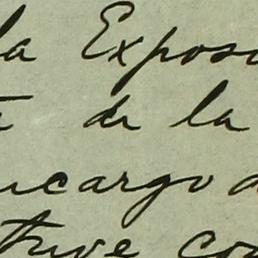 la Expos
de la
ncargo d
tuve con